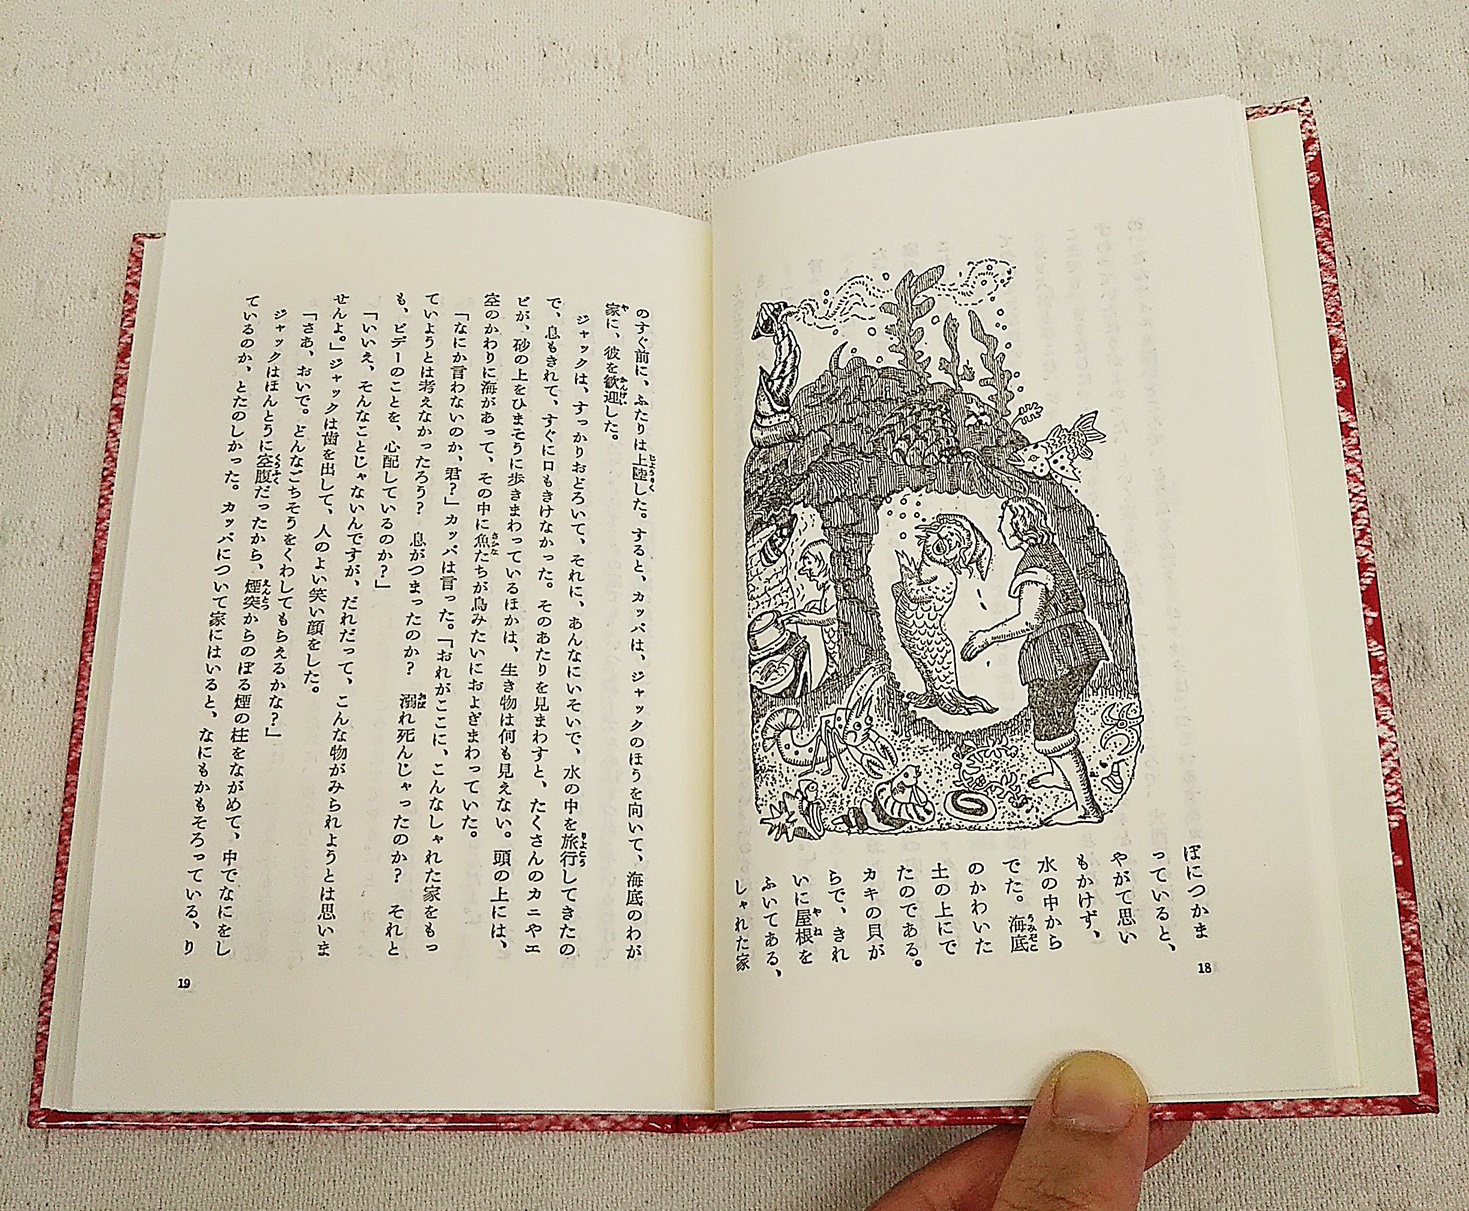 ぼにつかま
っていると、
やがて思い
もかけず、
水の中から
でた。海底
うみぞこ
のかわいた
土の上にで
たのである。
カキの貝が
らで、きれ
いに屋根を
やね
ふいてある、
しゃれた家
18
のすぐ前に、ふたりは上陸した。すると、カッパは、ジャックのほうを向いて、海底のわが
じょうりく
家に、彼を歓迎した。
や
かんげい
ジャックは、すっかりおどろいて、それに、あんなにいそいで、水の中を旅行してきたの
りょこう
で、息もきれて、すぐに口もきけなかった。そのあたりを見まわすと、たくさんのカニやエ
ビが、砂の上をひまそうに歩きまわっているほかは、生き物は何も見えない。頭の上には、
空のかわりに海があって、その中に魚たちが鳥みたいにおよぎまわっていた。
さかな
「なにか言わないのか、君？」カッパは言った。「おれがここに、こんなしゃれた家をもっ
ていようとは考えなかったろう？　息がつまったのか？　溺れ死んじゃったのか？　それと
おぼ
も、ビデーのことを、心配しているのか？」
「いいえ、そんなことじゃないんですが、だれだって、こんな物がみられようとは思いま
せんよ。」ジャックは歯を出して、人のよい笑い顔をした。
「さあ、おいで。どんなごちそうをくわしてもらえるかな？」
ジャックはほんとうに空腹だったから、煙突からのぼる煙の柱をながめて、中でなにをし
くうふく
えんとつ
ているのか、とたのしかった。カッパについて家にはいると、なにもかもそろっている、り
19